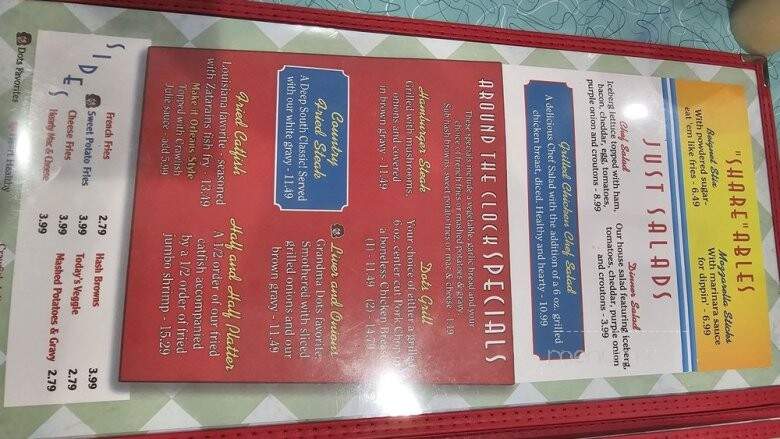 "SHARE"ABLES
Beignet Stix
With powdered sugar-
eat 'em like fries - 6.49
Mozzarella Sticks
With marinara sauce
for dippin' - 6.99
JUST SALADS
Chef Salad
Iceberg lettuce topped with ham,
bacon, cheddar, egg, tomatoes,
purple onion and croutons - 8.99
Dinner Salad
Our house salad featuring iceberg,
tomatoes, cheddar, purple onion
and croutons - 3.99
Grilled Chicken Chef Salad
A delicious Chef Salad with the addition of a 6 oz. grilled
chicken breast, diced. Healthy and hearty - 10.99
AROUND THE CLOCK SPECIALS
These specials include a vegetable, garlic bread and your
choice of french fries or mashed potatoes & gravy.
Sub hash browns, sweet potato fries or mac & cheese
Hamburger Steak
Grilled with mushrooms,
onions and covered
in brown gravy - 11.49
Dots Grill
Your choice of either a grilled
6 oz. center cut Pork Chop or
a boneless Chicken Breast
(1) 11.49 (2) 14.79
Country
Fried Steak
A Deep South Classic! Served
with our white gravy - 11.49
Liver and Onions
Grandma Dots favorite.
Smothered with sliced
grilled onions and our
brown gravy - 11.49
Fried Catfish
Louisiana favorite - seasoned
with Zatarains Fish fry - 13.49
Make it Orleans Style
Topped with Crawfish
Julie sauce - add 5.99
Half and Half Platter
A 1/2 order of our fried
catfish accompanied
by a 1/2 order of fried
jumbo shrimp - 15.29
SIDES
French Fries 2.79
Sweet Potato Fries 3.99
Cheese Fries 3.99
Hearty Mac & Cheese 3.99
Hash Browns 3.99
Today's Veggie 2.79
Mashed Potatoes & Gravy 2.79
Dots Favorites
Healthy